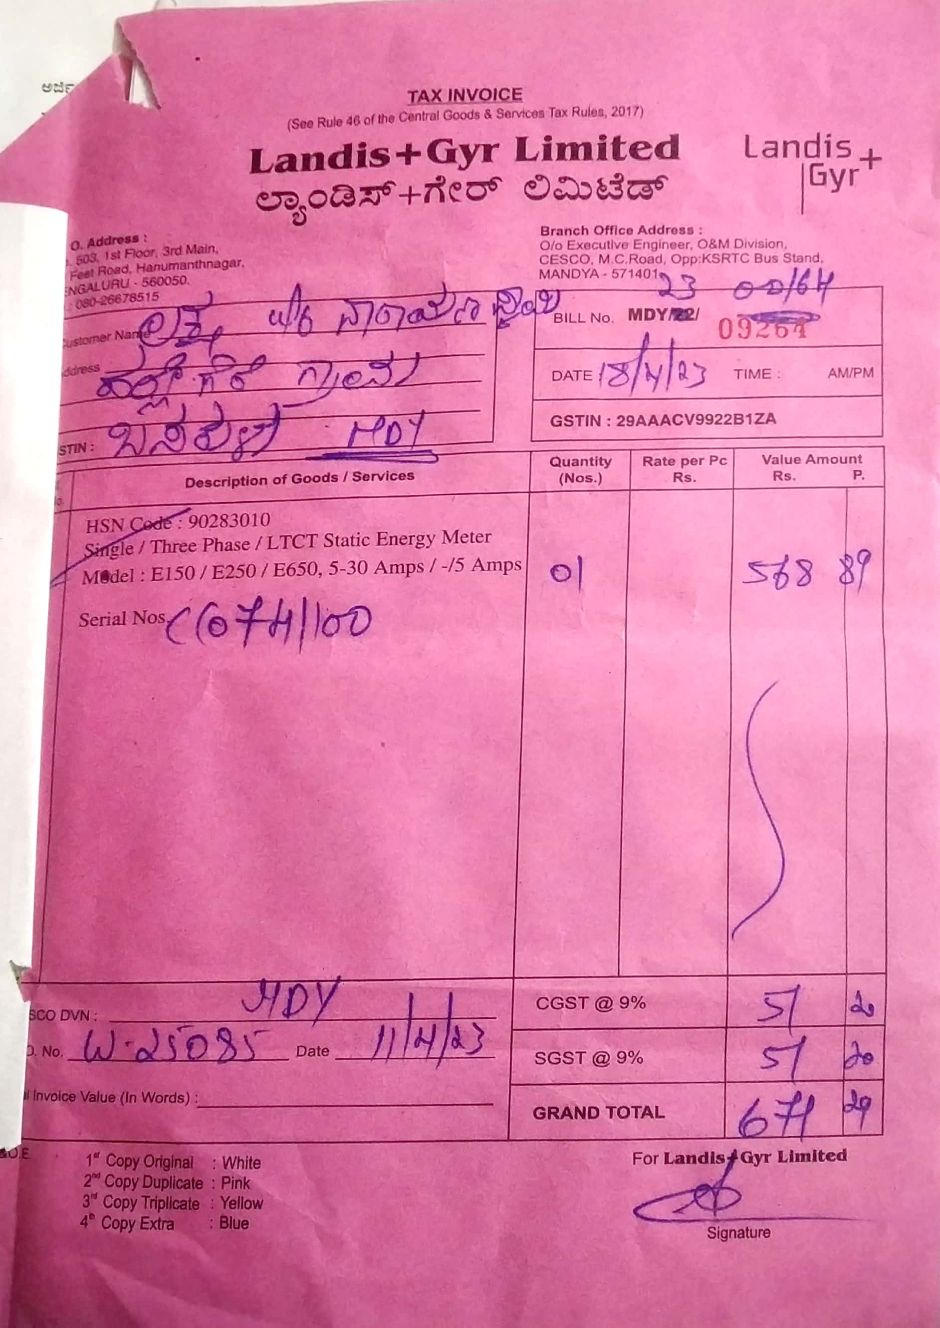 ಅರ್ಜಿ
TAX INVOICE
(See Rule 46 of the Central Goods & Services Tax Rules, 2017)
Landis+Gyr Limited
ಲ್ಯಾಂಡಿಸ್+ಗೇರ್ ಲಿಮಿಟೆಡ್
Landis
Gyr+
O. Address :
503, 1st Floor, 3rd Main,
Feet Road, Hanumanthnagar,
ENGALURU - 560050.
: 080-26678515
Branch Office Address :
O/o Executive Engineer, O&M Division,
CESCO, M.C.Road, Opp:KSRTC Bus Stand,
MANDYA - 571401
ustomer Name
ddress ಗ್ರಾಮ
STIN : MDY
23
BILL No. MDY/22/ 09264
DATE 18/4/23 TIME : AM/PM
GSTIN : 29AAACV9922B1ZA
Description of Goods / Services
Quantity (Nos.)
Rate per Pc Rs.
Value Amount Rs. P.
HSN Code : 90283010
Single / Three Phase / LTCT Static Energy Meter
Model : E150 / E250 / E650, 5-30 Amps / -/5 Amps 01 568 89
Serial Nos.
SCO DVN : MDY
O. No. W-25085 Date 11/4/23
Invoice Value (In Words) :
CGST @ 9% 51 20
SGST @ 9% 51 20
GRAND TOTAL 671 29
&O.E
1st Copy Original : White
2nd Copy Duplicate : Pink
3rd Copy Triplicate : Yellow
4th Copy Extra : Blue
For Landis+Gyr Limited
Signature